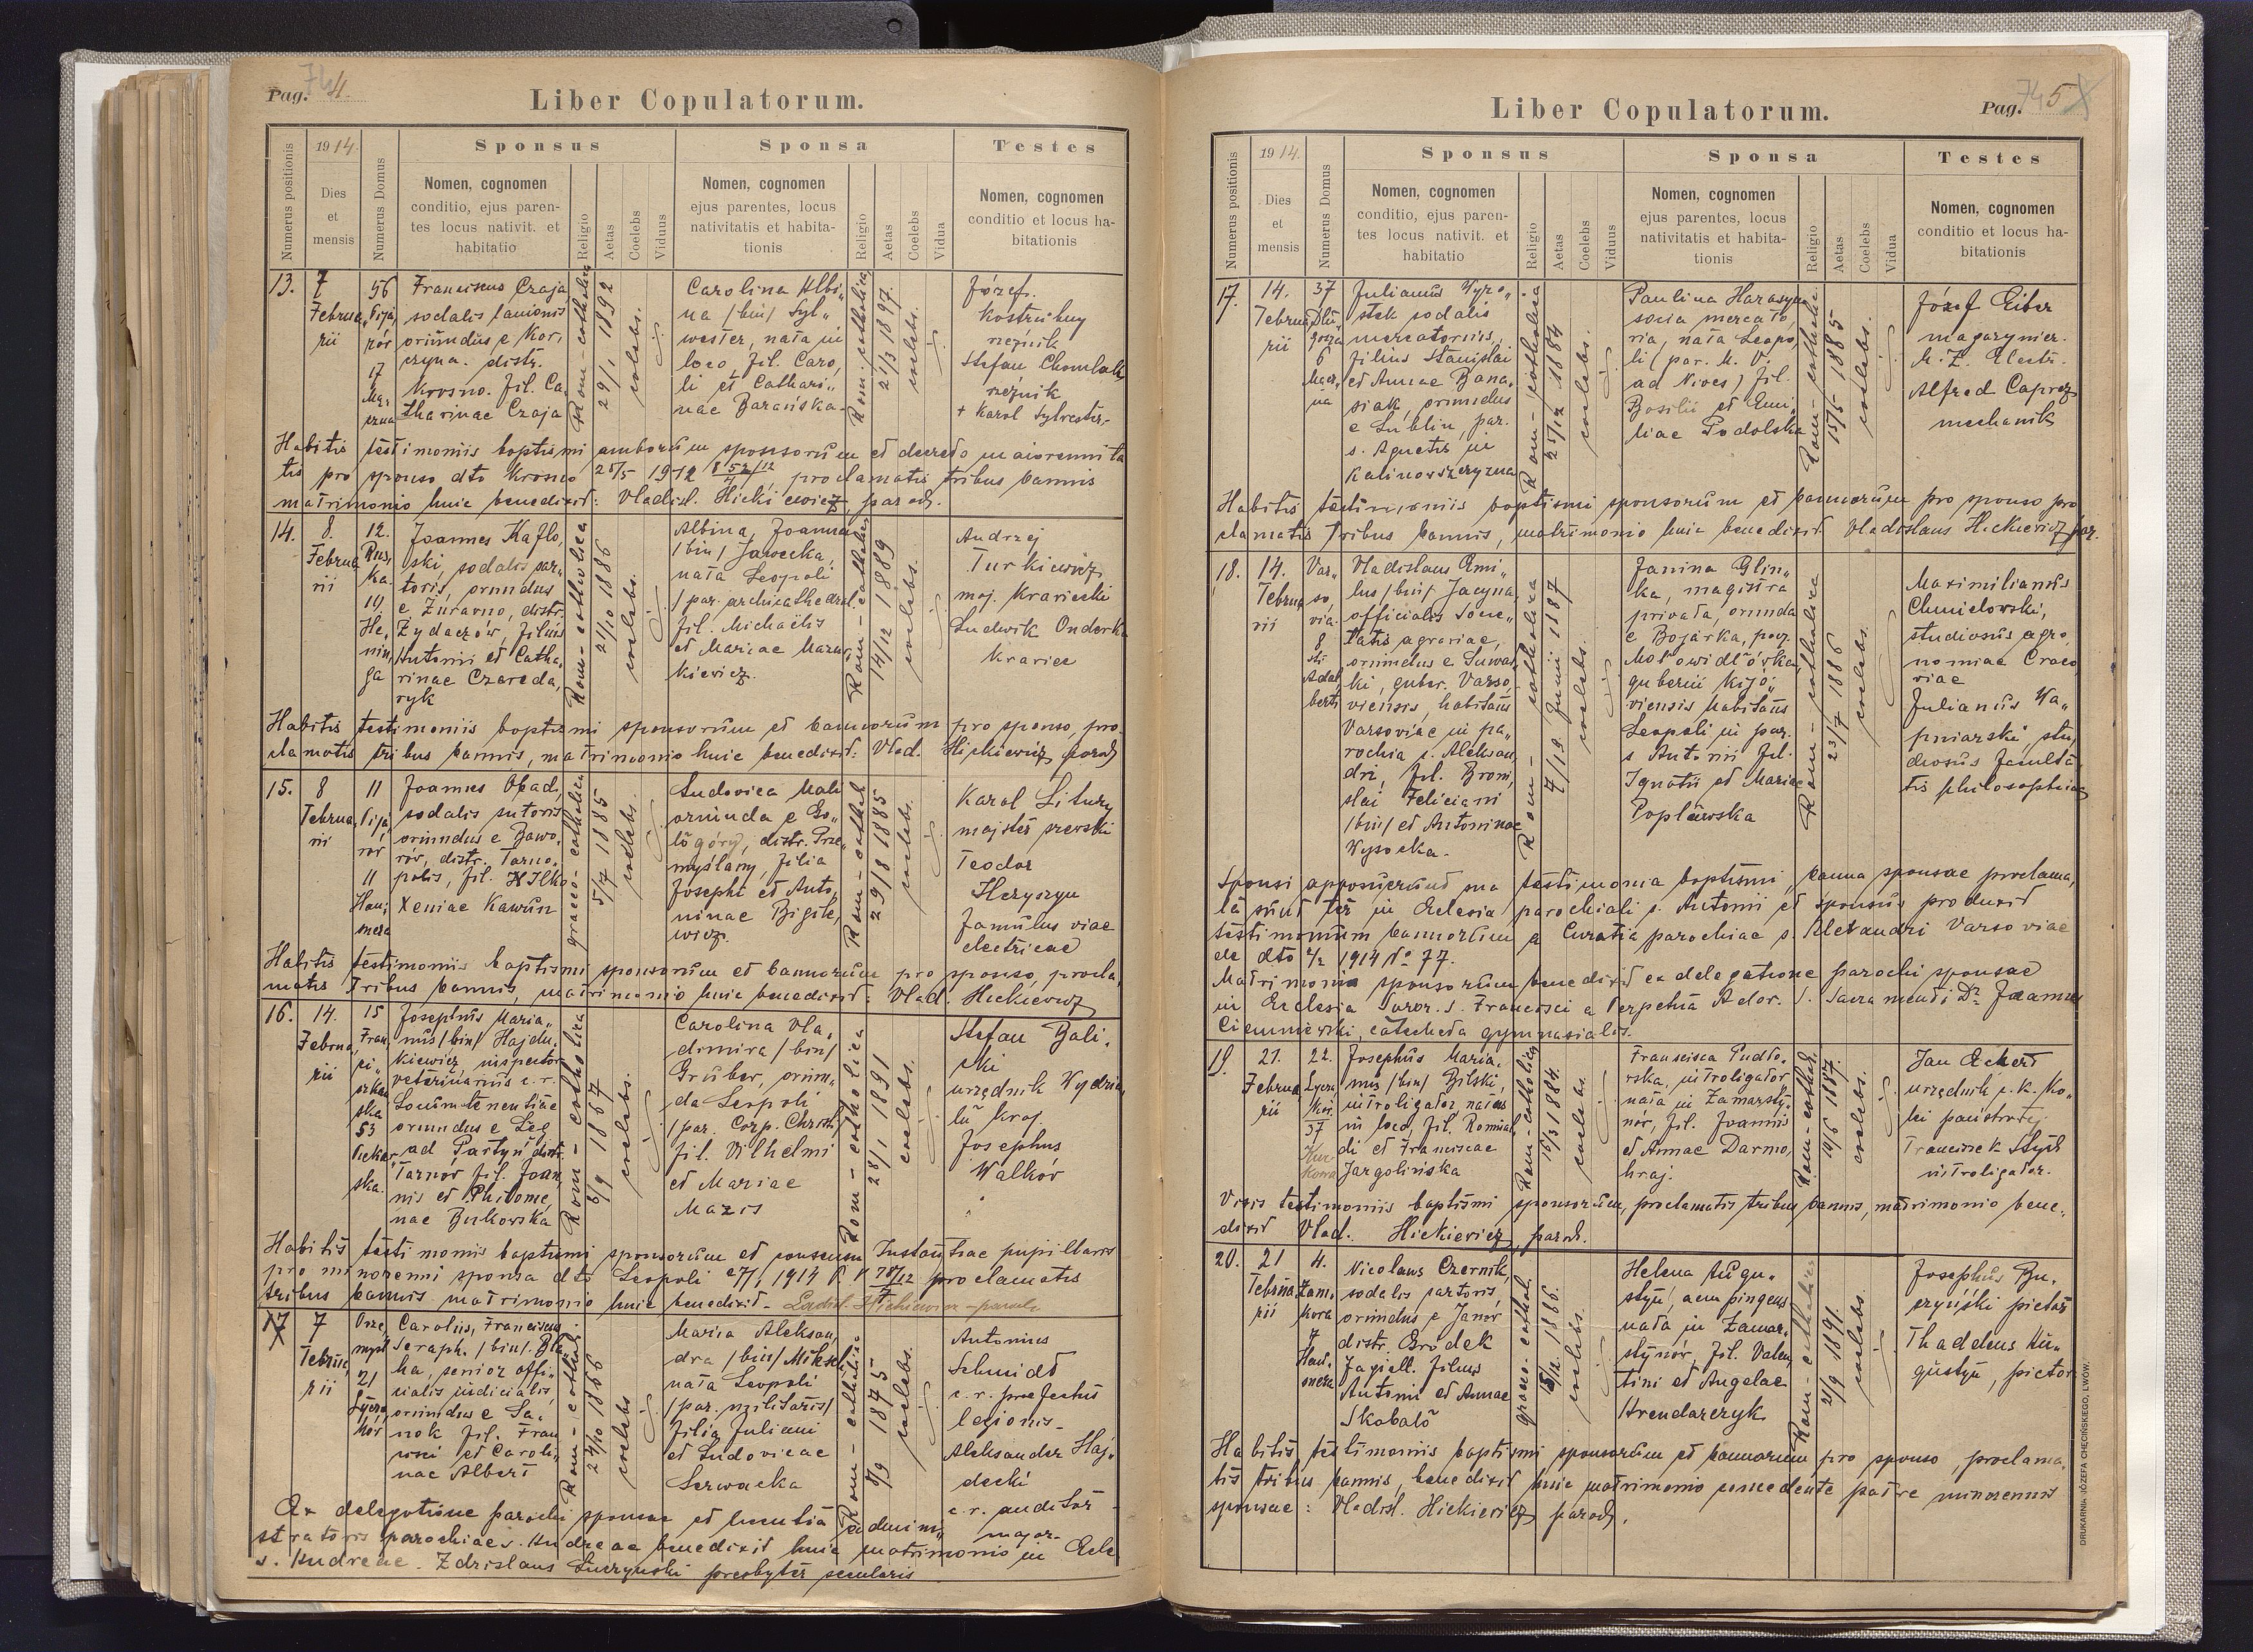 Pag. 4.
Liber Copulatorum.
Numerus positionis
1914.
Dies
et
mensis
Numerus Domus
Sponsus
Nomen, cognomen
conditio, ejus paren-
tes locus nativit. et
habitatio
Religio
Aetas
Coelebs
Viduus
Sponsa
Nomen, cognomen
ejus parentes, locus
nativitatis et habita-
tionis
Religio
Aetas
Coelebs
Vidua
Testes
Nomen, cognomen
conditio et locus ha-
bitationis
13.
7
Februa„
rii
56
Pija„
rów
17
Franciscus Czaja
sodalis lanionis
oriundus e Kor„
czyna. distr.
Krosno. fil. Ca„
tharinae Czaja
Rom-catholica
29/1 1892
coelebs.
Carolina Albi„
na /bin/ Syl„
wester, nata in
loco, fil. Caro„
li et Cathari„
nae Barańska.
Rom.-catholica
21/3 1897.
coelebs.
Józef
Kostrubny
rzeźnik
Stefan Chomlak
rzeźnik
+ Karol Sylvester.
Habitis testimoniis baptismi amborum sponsorum et decreto maiorennita
tis pro sponso dto Krosno 25/5 1912 proclamatis tribus bannis
matrimonio huic benedixit: Vladisl. Hickiewicz, paroch.
14.
8.
Februa
rii
12.
Rus„
ka.
19
He„
nin„
ga
Joannes Kaflo„
ski, sodalis sar„
toris, oriundus
e Żurawno, distr.
Żydaczów, filius
Antonii et Catha„
rinae Czereda„
ryk
Rom-catholica
21/10 1886
coelebs.
Albina, Joanna
/bin/ Jawecka,
nata Leopoli
/par. archicathedral.
fil. Michaelis
et Mariae Mazur„
kiewicz.
Rom-catholica
14/12 1889
coelebs.
Andrzej
Turkiewicz
maj. krawiecki
Ludwik Onderka
krawiec
Habitis testimoniis baptismi sponsorum et bannorum pro sponso, pro„
clamatis tribus bannis, matrimonio huic benedixit: Vlad. Hickiewicz paroch
15.
8
Februa„
rii
11
Pija„
rów
11
Hau„
snera
Joannes Opad„
sodalis sutoris
oriundus e Zawo„
rów, distr. Tarno„
polis, fil. Ilko
Xeniae Kawun
graeco-catholica
5/7 1885
coelebs.
Ludovica Mali
oriunda e Go„
łógóry, distr. Prze„
myślany, filia
Josephi et Anto„
ninae Bigile„
wicz.
Rom-cathol.
29/8 1885
coelebs.
Karol Litwry
majster szewski
Teodor
Heryszyn
famulus viae
electricae
Habitis testimoniis baptismi sponsorum et bannorum pro sponso, procla„
matis tribus bannis, matrimonio huic benedixit: Vlad. Hickiewicz
16.
14.
Februa„
rii
15
Fran„
ci„
szkań
ska
53
Piekar„
ska.
Josephus Maria„
nus /bin/ Hajdu„
kiewicz, inspector
veterinarius c. r.
Locumtenentiae
oriundus e Łęg
ad Partyń distr.
Tarnów fil. Joan„
nis et Philome„
nae Bukowska
Rom-catholica
6/9 1867
coelebs.
Carolina Vla„
dimira /bin/
Gruber, oriun„
da Leopoli
/par. Corp. Christi/
fil. Vilhelmi
et Mariae
Mazis
Rom-catholica
28/1 1891
coelebs.
Stefan Bali„
cki
urzędnik Wydzia„
łu kraj.
Josephus
Walków
Habitis testimoniis baptismi sponsorum et consensu Instantiae pupillaris
pro minorenni sponsa dto Leopoli 27/1 1914 proclamatis
tribus bannis matrimonio huic benedixit - Ladisl. Hickiewicz - paroch
17
7
Februa„
rii
Prze„
myśl
21
Łycza„
ków
Carolus, Franciscus
Seraph. /bin/ Bla„
ha, senior offi„
cialis judicialis
oriundus e Sa„
nok fil. Fran„
cisci et Caroli„
nae Albert
Rom-cathol.
24/10 1866
coelebs
Maria Aleksan„
dra /bin/ Miksch
nata Leopoli
/par. militaris/
filia Juliani
et Ludovicae
Serwacka
Rom-catholica
8/9 1875
coelebs.
Antonius
Schmidt
c. r. praefectus
legionis
Aleksander Haj„
decki
c. r. auditor
major.
Ex delegatione parochi sponsae et licentia admini„
stratoris parochiae s. Andreae benedixit huic matrimonio in Eccle
s. Andreae. Zdzislaus Łuczyński presbyter secularis
Pag. 5
Liber Copulatorum.
Numerus positionis
1914.
Dies
et
mensis
Numerus Domus
Sponsus
Nomen, cognomen
conditio, ejus paren-
tes locus nativit. et
habitatio
Religio
Aetas
Coelebs
Viduus
Sponsa
Nomen, cognomen
ejus parentes, locus
nativitatis et habita-
tionis
Religio
Aetas
Coelebs
Vidua
Testes
Nomen, cognomen
conditio et locus ha-
bitationis
17.
14.
Februa
rii
37
Dłu„
gosza
6
Julianus Wyro„
stek sodalis
mercatorius,
filius Stanislai
et Annae Bana„
siak, oriundus
e Lublin, par.
s. Agnetis in
Kalinowszczyzna
Rom-catholica
25/12 1884
coelebs.
Paulina Harasym
socia mercato„
ria, nata Leopo„
li (par. M. V.
ad Nives) fil.
Basilii et Emi„
liae Podolska
Rom-catholica
15/5 1885
coelebs.
Józef Eiber
magazynier.
M. Z. Electr.
Alfred Caprez
mechanik
Habitis testimoniis baptismi sponsorum et bannorum pro sponso pro
clamatis tribus bannis, matrimonio huic benedixit. Vladislaus Hickiewicz par.
18.
14.
Februa
rii
Var„
so„
via
8
sti
Adal
berti
Vladislaus Emi„
lus /bin/ Jacyna,
officialis Socie„
tatis agrariae,
oriundus e Suwał
ki, guber. Varso„
viensis, habitans
Varsoviae in pa„
rochia s. Aleksan„
dri, fil. Broni„
slai Feliciani
/bin/ et Antoninae
Wysocka.
Rom-catholica
7/19 Junii 1887
coelebs.
Janina Glin„
ka, magistra
privata, oriunda
e Bojárka, pow.
Motowidłówka,
gubernii Kijo„
viensis habitans
Leopoli in par.
s Antonii fil.
Ignatii et Mariae
Popławska
Rom-catholica
23/7 1886
coelebs.
Maximilianus
Chmielowski,
studiosus agro„
nomiae Craco
viae
Julianus Wa„
pniarski, stu„
diosus faculta„
tis philosophiae
Sponsi apposuerunt sua testimonia baptismi, banna sponsae proclama„
ta sunt ter in Ecclesia parochiali s. Antonii et sponsus produxit
testimonium bannorum a Curatia parochiae s. Alexandri Varsoviae
de dto 4/2 1914 No 77.
Matrimonia sponsorum benedixit ex delegatione parochi sponsae
in Ecclesia Soror. S. Francisci a Perpetua Ador. S. Sacramenti Dr Joannes
Ciemniewski, catecheta gymnasialis.
19.
21.
Februa
rii
22.
Łycza
ków.
37
Kur
kowa
Josephus Maria„
nus /bin/ Bilski,
introligator, natus
in loco, fil. Romual„
di et Franciscae
Jargolińska
Rom-catholica
15/3 1884.
coelebs.
Francisca Pudło„
wska, introligator
nata in Zamarsty„
nów, fil. Joannis
et Annae Darmo„
hraj.
Rom-cathol.
10/6 1887.
coelebs.
Jan Eckert
urzędnik c. k. Ko„
lei państwowej
Franciszek Styś
introligator.
Visis testimoniis baptismi sponsorum, proclamatis tribus bannis, matrimonio bene„
dixit Vlad. Hickiewicz, paroch.
20.
21
Februa
rii
4.
Zam„
kowa
7
Hau„
snera
Nicolaus Czernik,
sodalis sartoris,
oriundus e Janów
distr. Gródek
Jagiell. filius
Antonii et Annae
Skobało
graeco-cathol.
5/12 1886.
coelebs.
Helena Augu„
styn, acu pingens
nata in Zamar„
stynów, fil. Valen„
tini et Angelae
Arendarczyk
Rom-catholica
2/9 1891.
coelebs.
Josephus Bu„
czyński pictor
Thaddeus Au„
gustyn, pictor
Habitis testimoniis baptismi sponsorum et bannorum pro sponso, proclama„
tis tribus bannis, benedixit huic matrimonio concedente patre minorennis
sponsae: Vladisl. Hickiewicz paroch.
DRUKARNIA JÓZEFA CHĘCIŃSKIEGO, LWÓW.